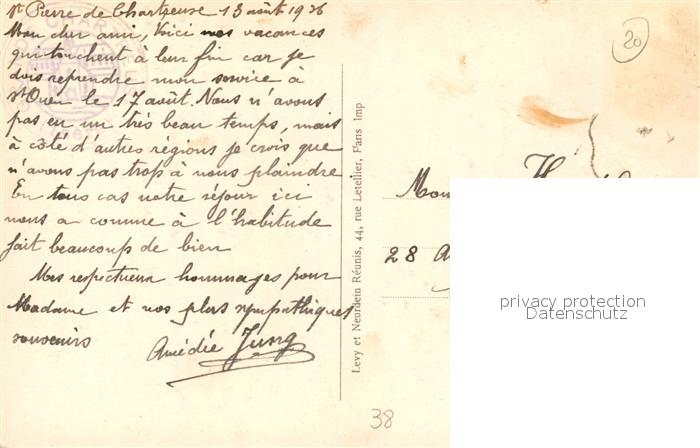 St Pierre de Chartreuse 13 août 1926
Mon cher ami, Voici nos vacances
qui touchent à leur fin car je
dois reprendre mon service à
St Ouen le 17 août. Nous n'avons
pas eu un très beau temps, mais
à côté d'autres régions je crois que
n'avons pas trop à nous plaindre
En tous cas notre séjour ici
nous a comme à l'habitude
fait beaucoup de bien
Mes respectueux hommages pour
Madame et nos plus sympathiques
souvenirs
Amédée Jung
Levy et Neurdein Réunis, 44, rue Letellier, Paris Imp
20
Mon
28 A
38
privacy protection
Datenschutz